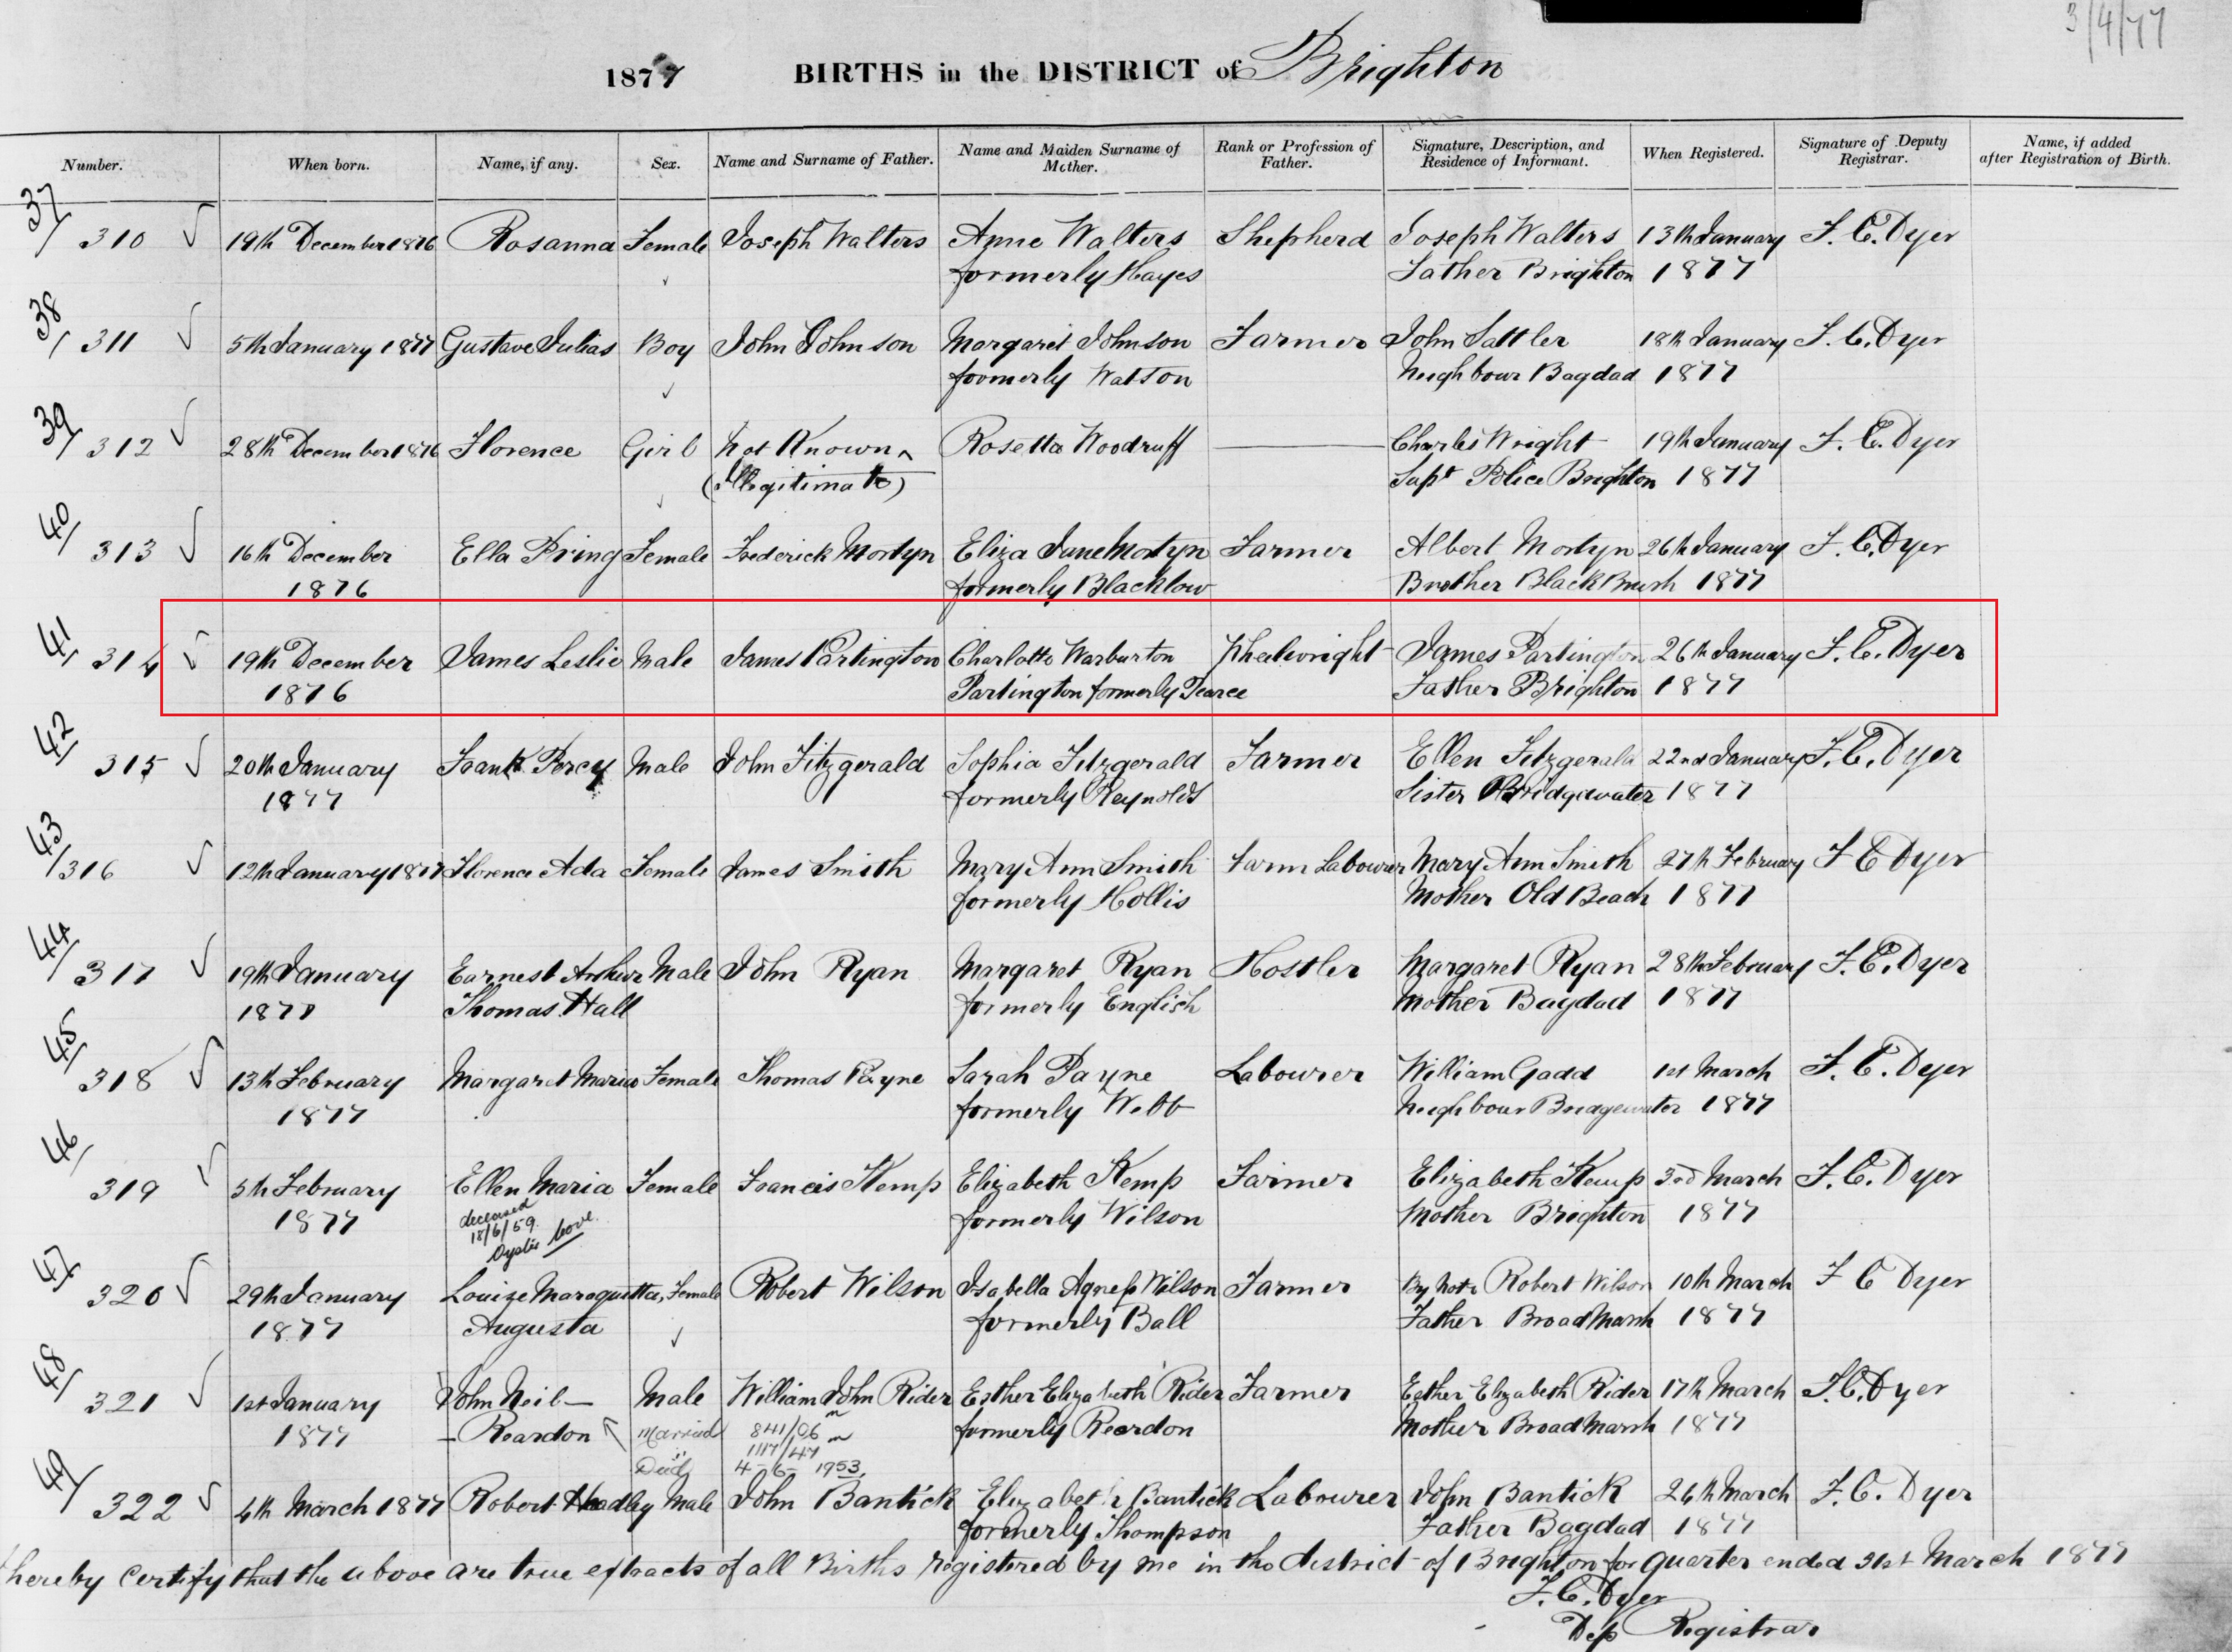 3/4/77
1877 BIRTHS in the DISTRICT of Brighton
Number. When born. Name, if any. Sex. Name and Surname of Father. Name and Maiden Surname of Mother. Rank or Profession of Father. Signature, Description, and Residence of Informant. When Registered. Signature of Deputy Registrar. Name, if added after Registration of Birth.
37/ 310 19th December 1876 Rosanna Female Joseph Walters Anne Walters Shepherd Joseph Walters 13th January F. C. Dyer
formerly Hayes Father Brighton 1877
38/ 311 5th January 1877 Gustave Julias Boy John Johnson Margaret Johnson Farmer John Sattler 18th January F. C. Dyer
formerly Watson Neighbour Bagdad 1877
39/ 312 28th December 1876 Florence Girl Not Known Rosetta Woodruff Charles Wright 19th January F. C. Dyer
(Illegitimate) Supt Police Brighton 1877
40/ 313 16th December Ella Pring Female Frederick Mortyn Eliza Jane Mortyn Farmer Albert Mortyn 26th January F. C. Dyer
1876 formerly Blacklow Brother Black Brush 1877
41/ 314 19th December James Leslie Male James Partington Charlotte Warburton Wheelwright James Partington 26th January F. C. Dyer
1876 Partington formerly Pearce Father Brighton 1877
42/ 315 20th January Frank Percy Male John Fitzgerald Sophia Fitzgerald Farmer Ellen Fitzgerald 22nd January F. C. Dyer
1877 formerly Reynolds Sister Bridgewater 1877
43/ 316 12th January 1877 Florence Ada Female James Smith Mary Ann Smith Farm Labourer Mary Ann Smith 27th February F C Dyer
formerly Hollis Mother Old Beach 1877
44/ 317 19th January Earnest Arthur Male John Ryan Margaret Ryan Hostler Margaret Ryan 28th February F. C. Dyer
1877 Thomas Hall formerly English Mother Bagdad 1877
45/ 318 13th February Margaret Maria Female Thomas Payne Sarah Payne Labourer William Gadd 1st March F. C. Dyer
1877 formerly Webb Neighbour Bridgewater 1877
46/ 319 5th February Ellen Maria Female Francis Kemp Elizabeth Kemp Farmer Elizabeth Kemp 3rd March F. C. Dyer
1877 deceased formerly Wilson Mother Brighton 1877
18/6/59
Oyster Cove.
47/ 320 29th January Louize Maraquetta, Female Robert Wilson Isabella Agness Wilson Farmer By Note Robert Wilson 10th March F C Dyer
1877 Augusta formerly Ball Father Broad Marsh 1877
48/ 321 1st January John Neil Male William John Rider Esther Elizabeth Rider Farmer Esther Elizabeth Rider 17th March F. C. Dyer
1877 Reardon Married 841/06 m formerly Reardon Mother Broad Marsh 1877
" 1117/47 m
Died 4-6-1953.
49/ 322 4th March 1877 Robert Headley Male John Bantick Elizabeth Bantick Labourer John Bantick 26th March F. C. Dyer
formerly Thompson Father Bagdad 1877
I hereby certify that the above are true extracts of all Births registered by me in the district of Brighton for quarter ended 31st March 1877
F. C. Dyer
Dep Registrar